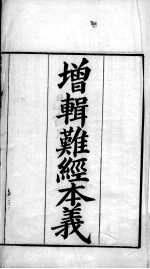 增輯難經本義